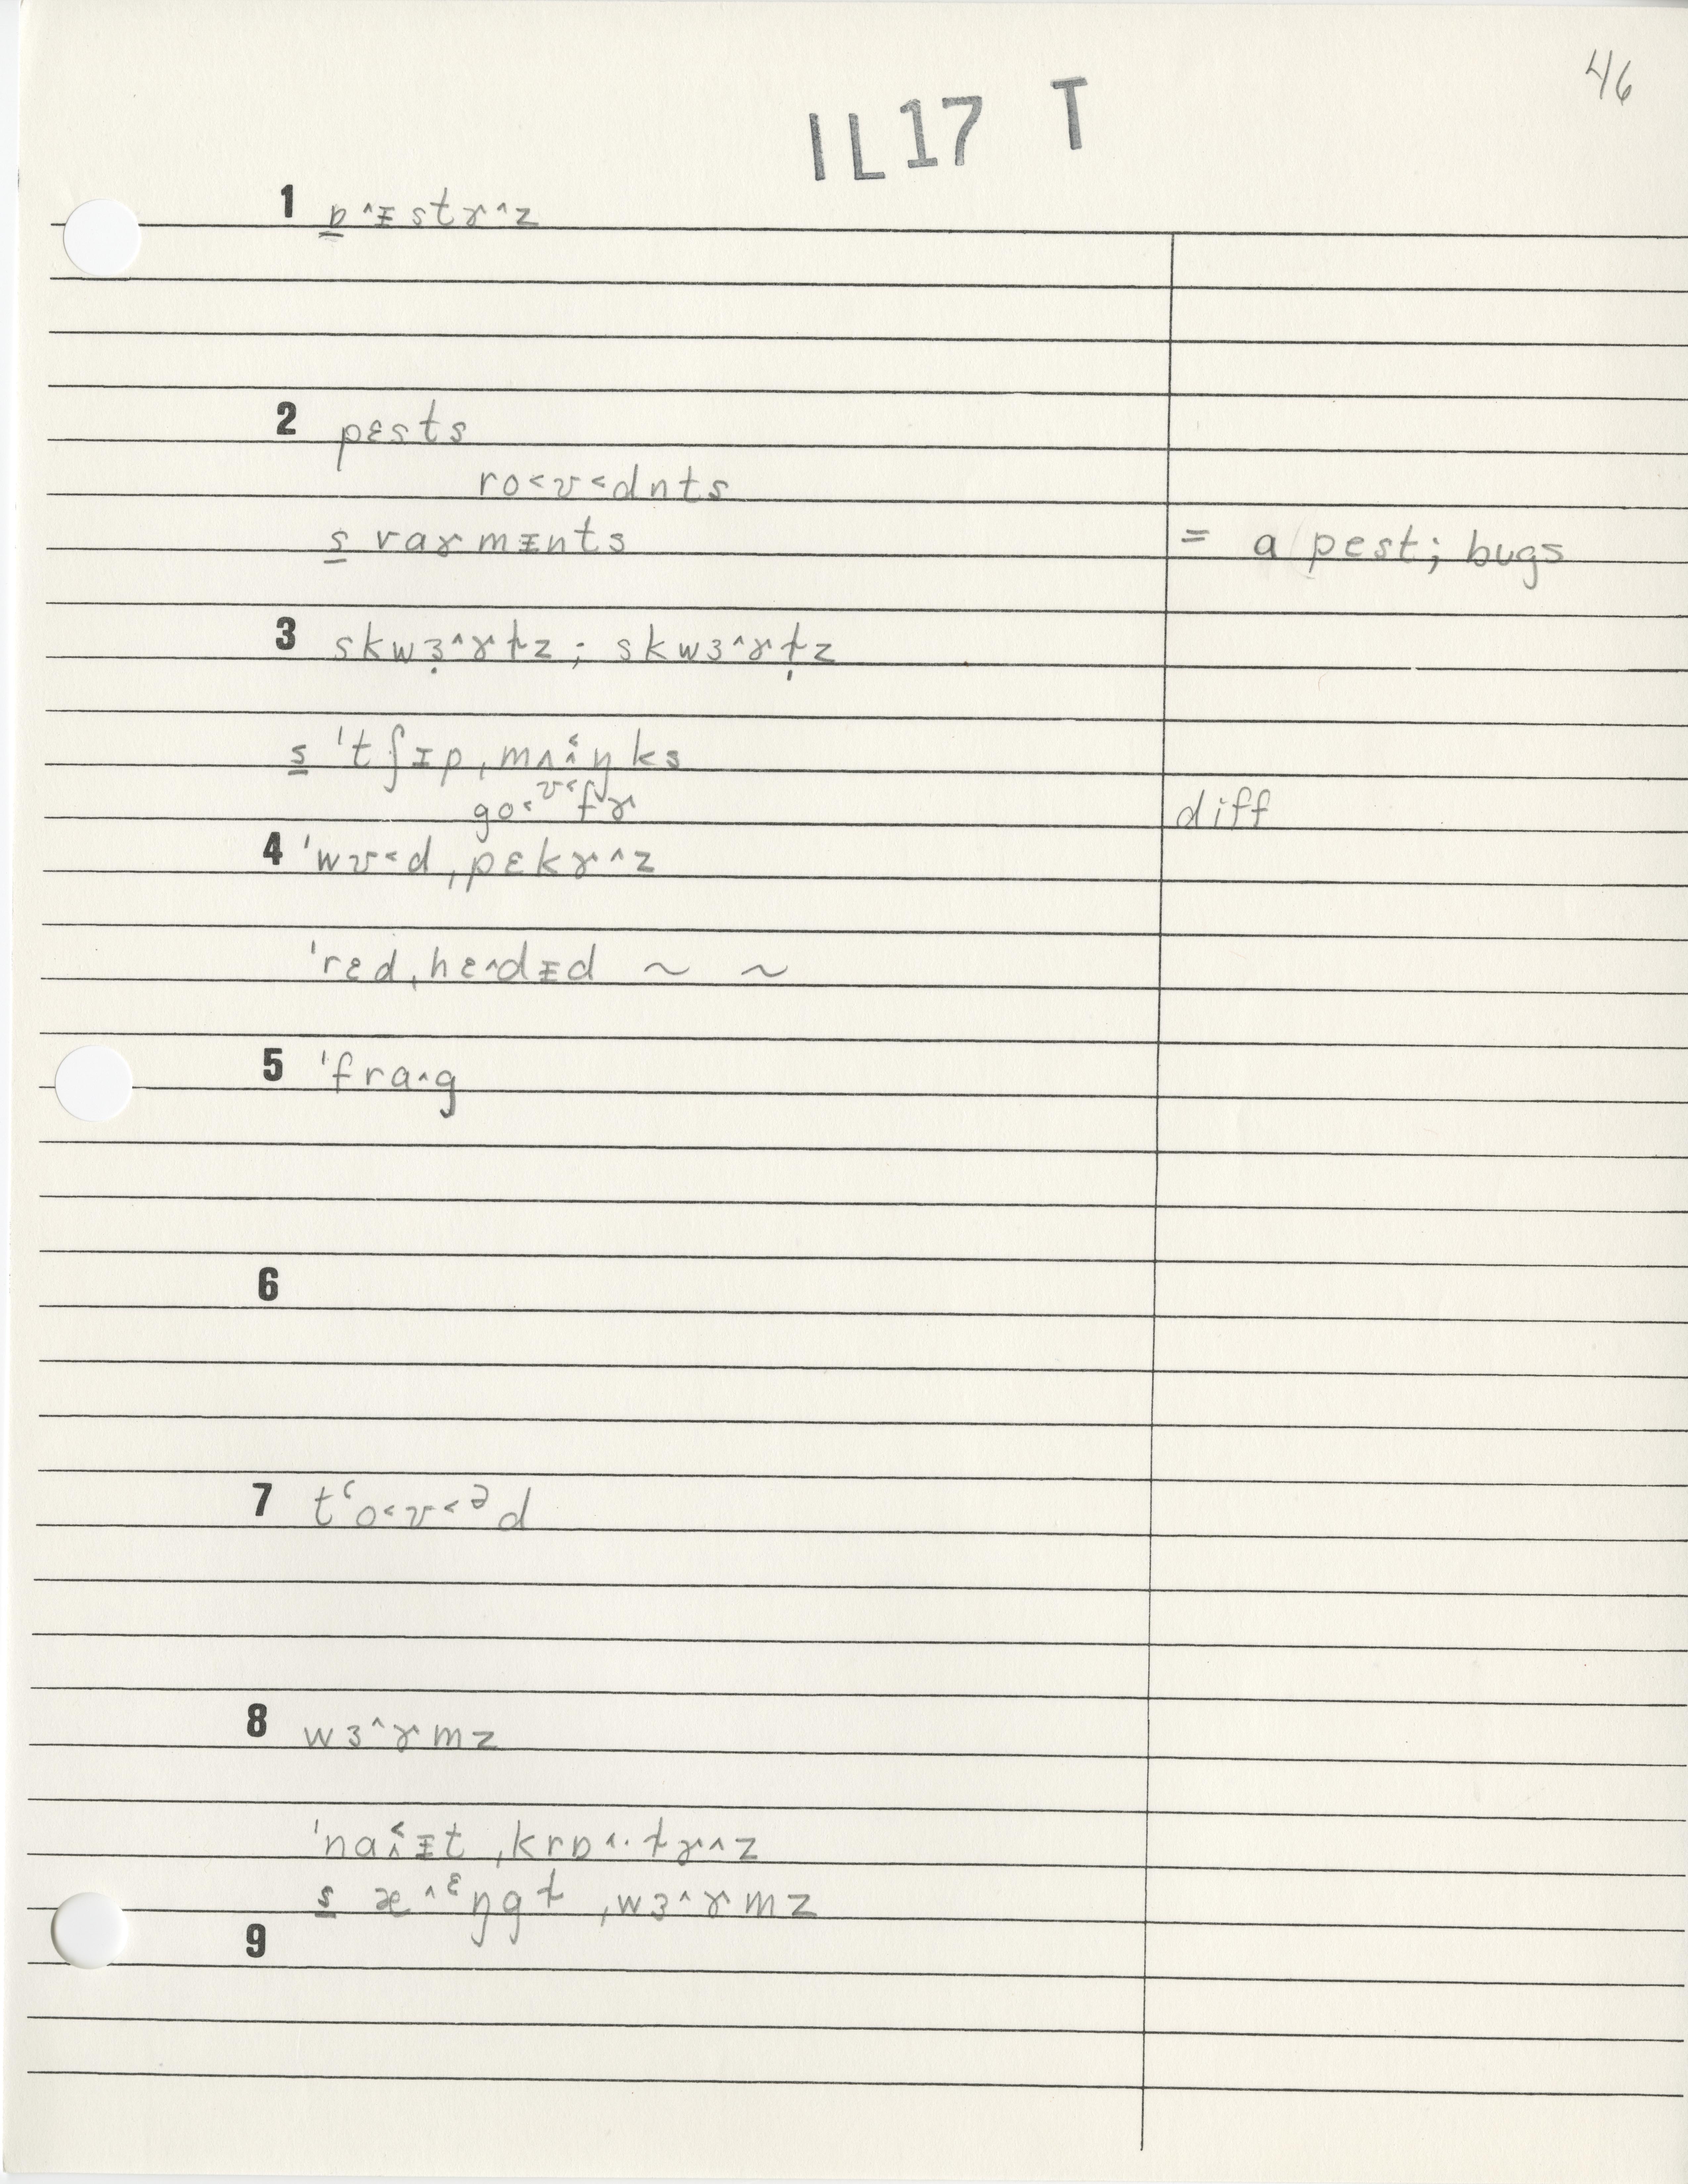 46
IL17 T
1 ɒ̲ ˄ɪstɚ˄z
2 pɛsts
ro˂ʊ˂dnts
s̲ vaɚmɪnts = a pest; bugs
3 skwɜ̣˄ɚɫz ; skwɜ˄ɚɫ̩z
s̲ ˈtʃɪp ˌmʌ˄i˂ŋks
go˂ʊ˂fɚ diff
4 ˈwʊ˂d ˌpɛkɚ˄z
ˈrɛd ˌhɛ˄dɪd ~ ~
5 ˈfrɑ˄g
6
7 tʻo˂ʊ˂ᵊd
8 wɜ˄ɚmz
ˈna˄˂ɪt ˌkrɒ˄·ɫɚ˄z
s̲ æ˄ᵋŋgɫ ˌwɜ˄ɚmz
9